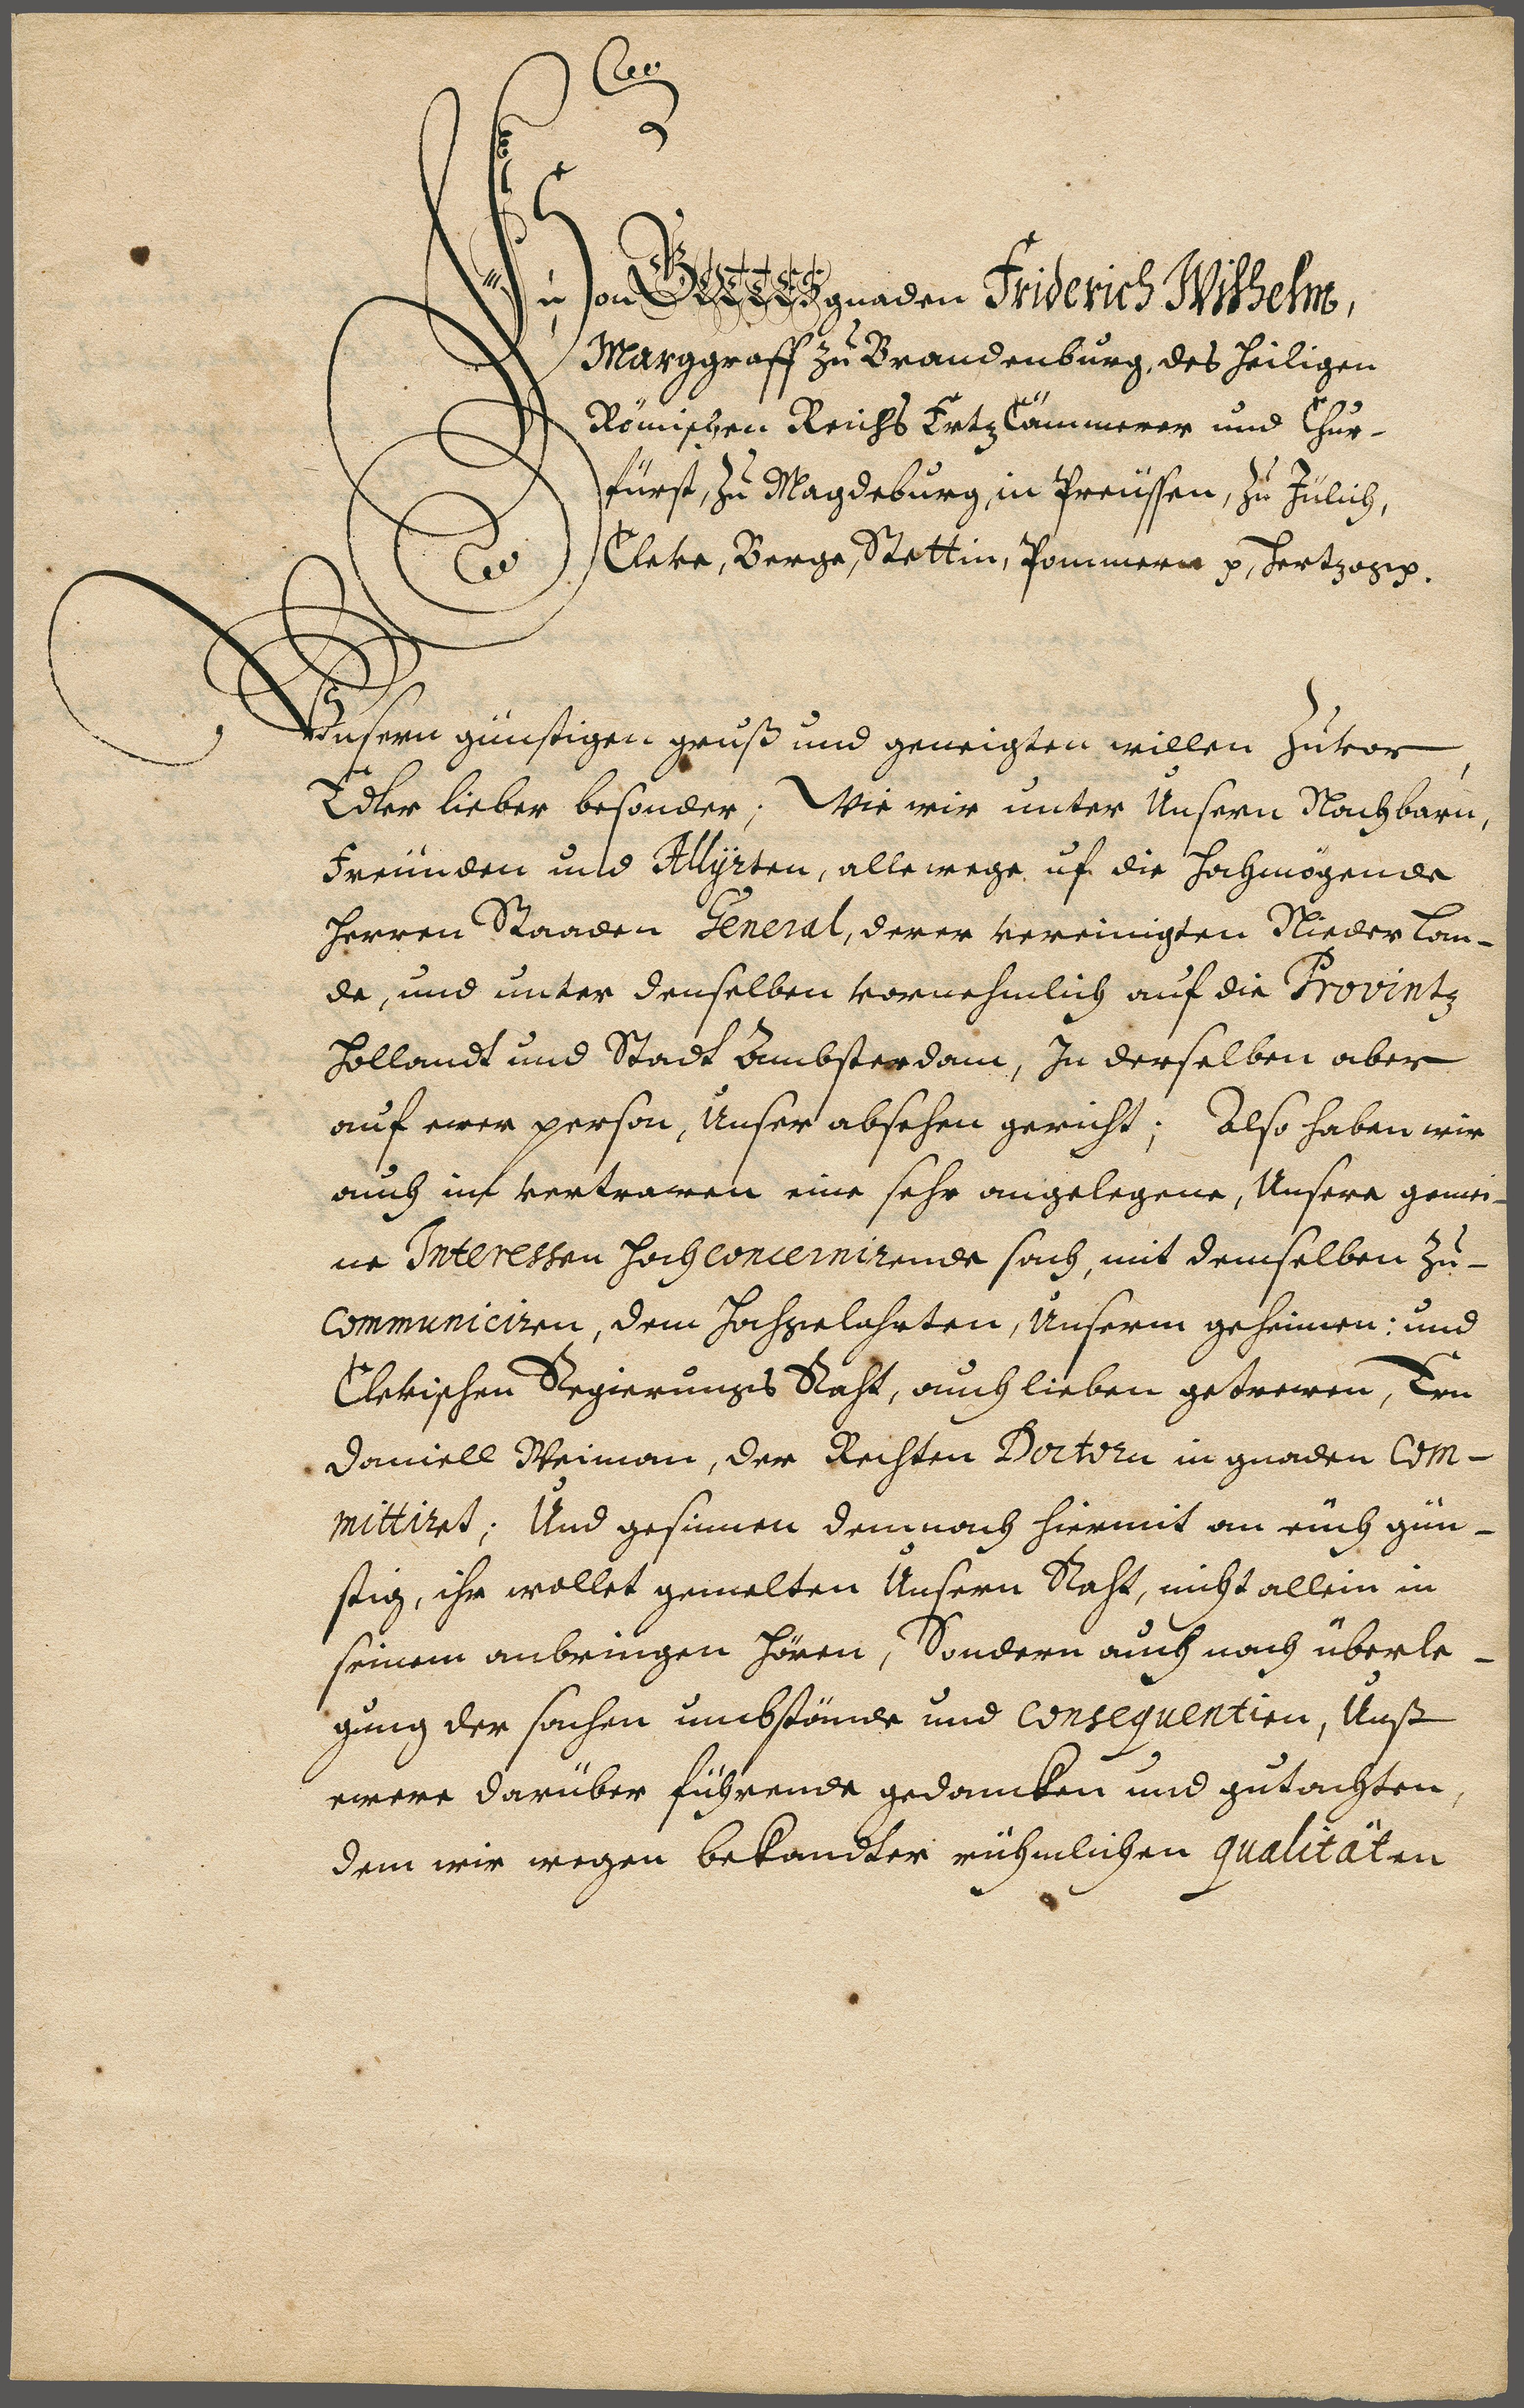 Von GOTTES gnaden Friderich Wilhelm,
Marggraff zu Brandenburg, des Heiligen
Römischen Reichs Ertz Cämmerer und Chur-
fürst, zu Magdeburg, in Preüssen, zu Jülich,
Cleve, Berge, Stettin, Pommern p, Hertzog p.
Unsern günstigen gruß und geneigten willen zuvor,
Edler lieber besonder; Wie wir unter Unsern Nachbarn,
Freünden und Allyrten, allewege uf die Hochmögende
Herren Staaden General, derer vereinigten Niederlan-
de, und unter denselben vornehmlich auf die Provintz
Hollandt und Stadt Ambsterdam, In derselben aber
auf ewer person, Unser absehen gericht; Also haben wir
auch im vertrawen eine sehr angelegene, Unsere gemei-
ne Interessen hochconcernirende sach, mit demselben zu-
communiciren, dem Hochgelahrten, Unserm geheimen: und
Clevischen Regierungs Raht, auch lieben getrewen, Ern
Daniell Weiman, der Rechten Doctorn in gnaden com-
mittiret; Und gesinnen demnach hiermit an eüch gün-
stig, ihr wollet gemelten Unsern Raht, nicht allein in
seinem anbringen hören, Sondern auch nach überle-
gung der sachen umbstände und consequentien, Unß
ewere darüber führende gedancken und gutachten,
dem wir wegen bekandter rühmlichen qualitäten